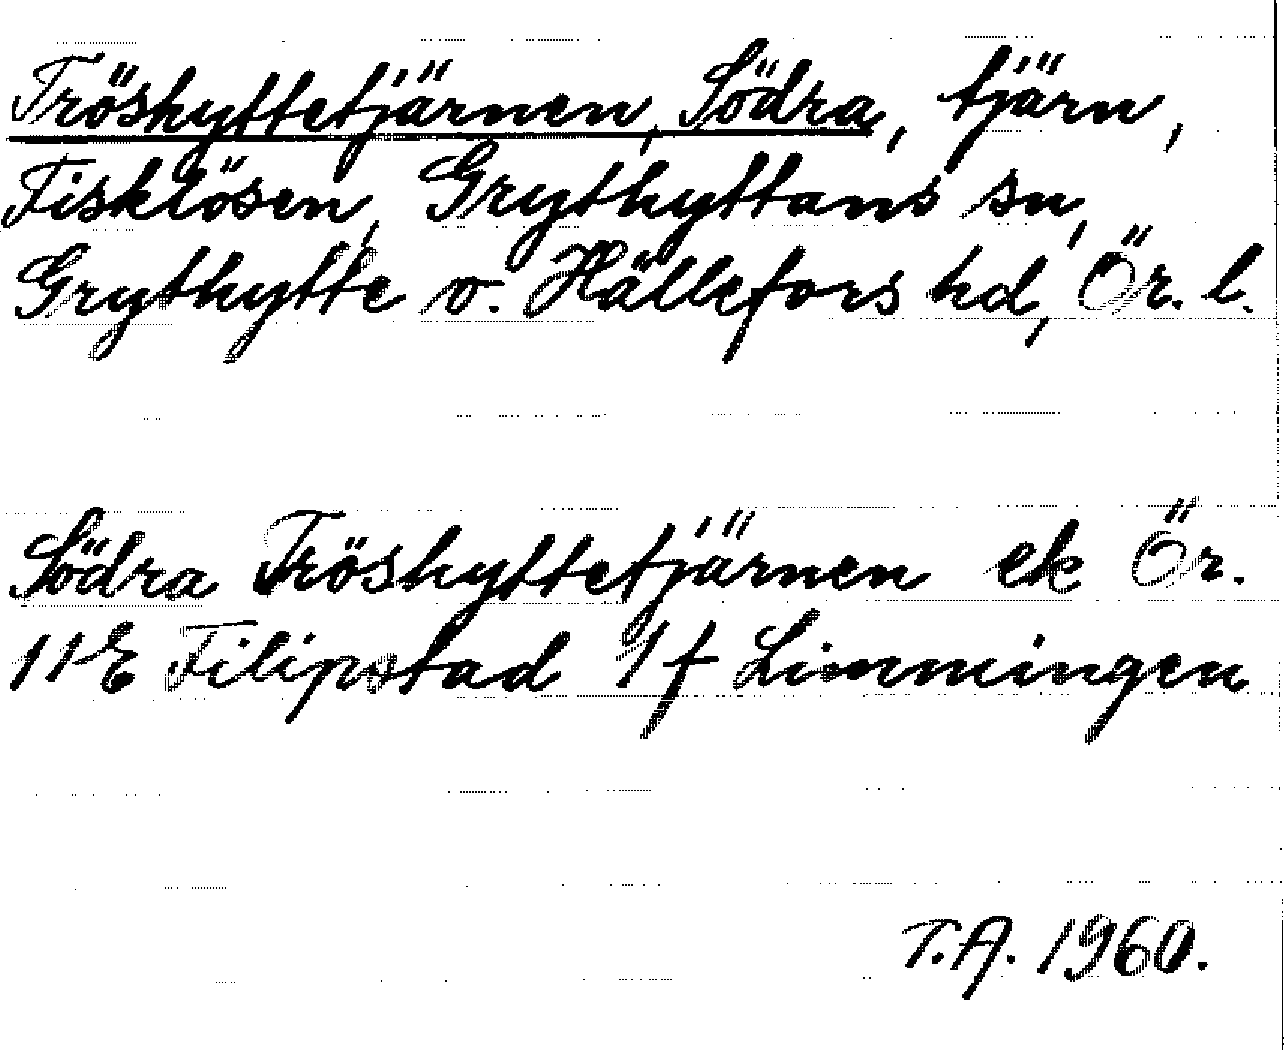 Tröshyttetjärnen, Södra, tjärn,
Fisklösen, Grythyttans sn,
Grythytte o. Hällefors hd, Ör. l.
Södra Tröshyttetjärnen ek Ör.
11E Filipstad 1f Limmingen
T.A. 1960.